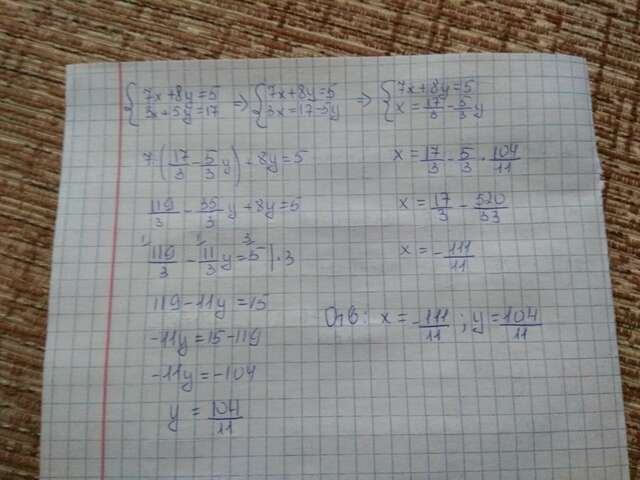 {7x+8y=5 ⇒ {7x+8y=5 ⇒ {7x+8y=5
{3x+5y=17 {3x=17-5y {x=17/3-5/3y
7·(17/3-5/3y)+8y=5
119/3-35/3y+8y=5
119/3-11/3y=5|·3
119-11y=15
-11y=15-119
-11y=-104
y=104/11
x=17/3-5/3·104/11
x=17/3-520/33
x=-111/11
Отв: x=-111/11; y=104/11